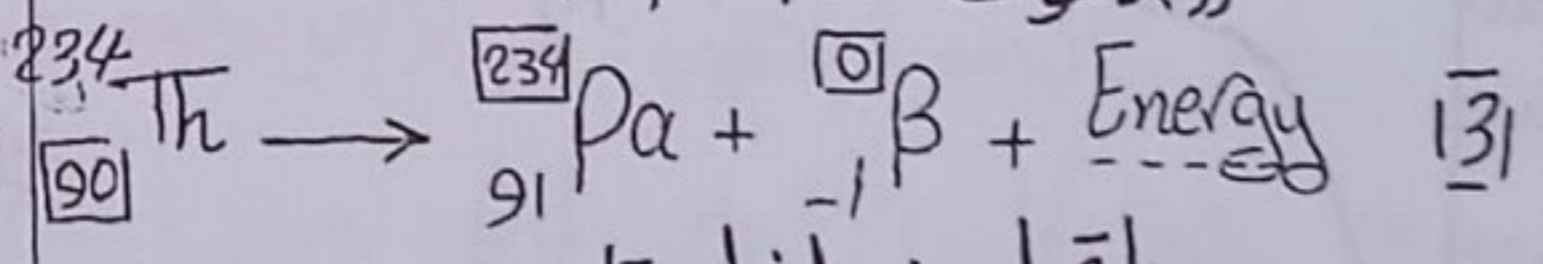 ²³⁴₉₀Th → ²³⁴₉₁Pa + ⁰₋₁β + Energy |3|